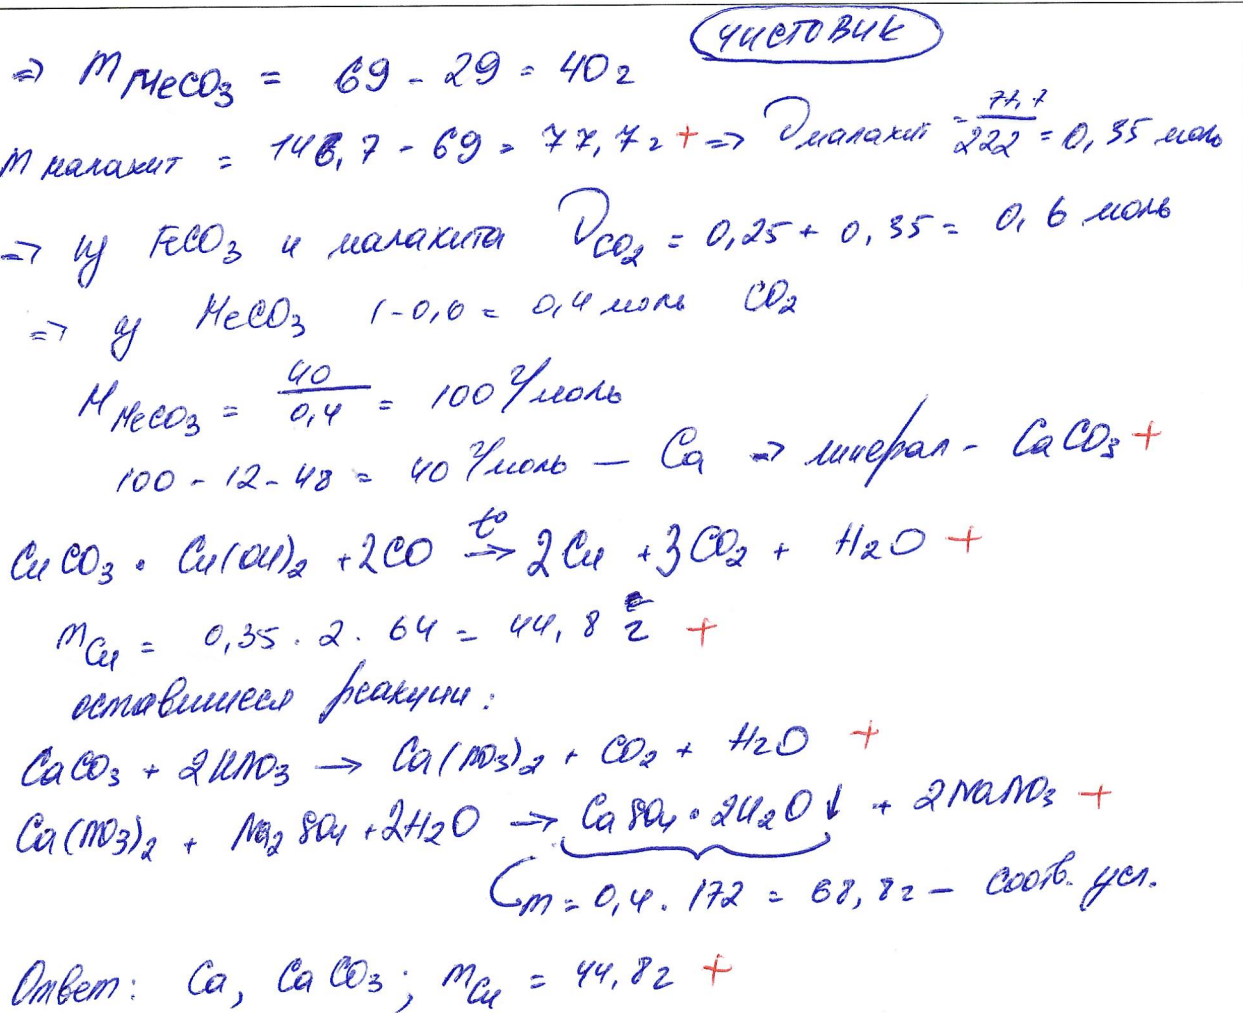 ЧИСТОВИК
=> m MeCO₃ = 69 - 29 = 40 г
m малахит = 146,7 - 69 = 77,7 г + => ν малахит = 77,7/222 = 0,35 моль
=> из FeCO₃ и малахита ν CO₂ = 0,25 + 0,35 = 0,6 моль
=> из MeCO₃ 1-0,6 = 0,4 моль CO₂
M MeCO₃ = 40/0,4 = 100 г/моль
100 - 12 - 48 = 40 г/моль — Ca => минерал - CaCO₃ +
CuCO₃ · Cu(OH)₂ + 2CO →(t°) 2Cu + 3CO₂ + H₂O +
m Cu = 0,35 · 2 · 64 = 44,8 г +
оставшиеся реакции:
CaCO₃ + 2HNO₃ → Ca(NO₃)₂ + CO₂ + H₂O +
Ca(NO₃)₂ + Na₂SO₄ + 2H₂O → CaSO₄ · 2H₂O↓ + 2NaNO₃ +
m = 0,4 · 172 = 68,8 г — соотв. усл.
Ответ: Ca, CaCO₃; m Cu = 44,8 г +